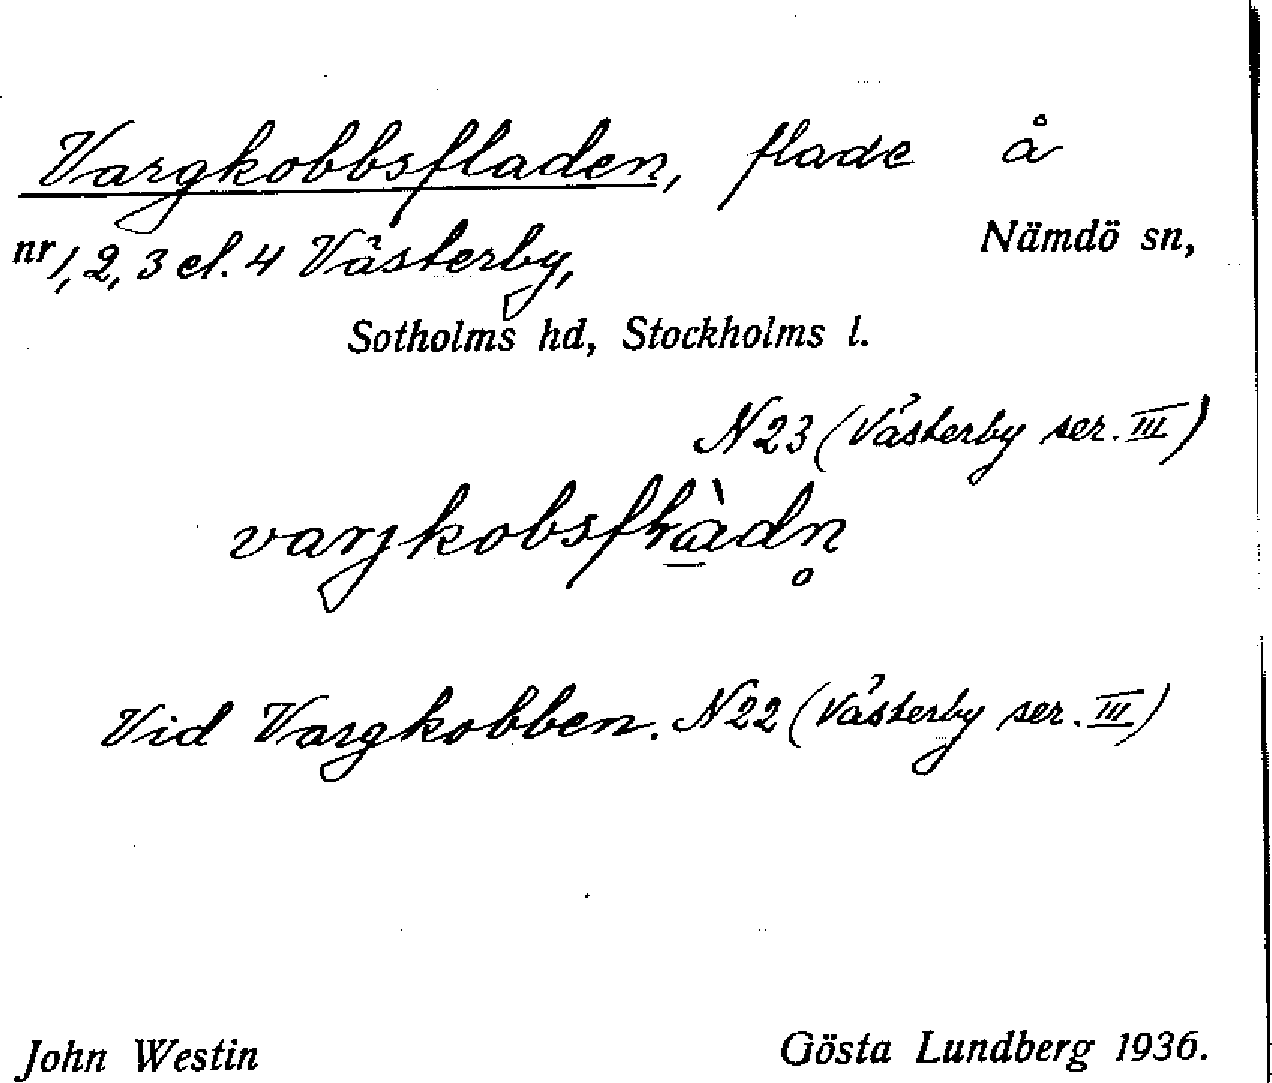 Vargkobbsfladen, flade å
nr 1, 2, 3 el. 4 Västerby, Nämdö sn,
Sotholms hd, Stockholms l.
N 23 (Västerby ser. III)
Vid Vargkobben. N 22 (Västerby ser. III)
John Westin Gösta Lundberg 1936.